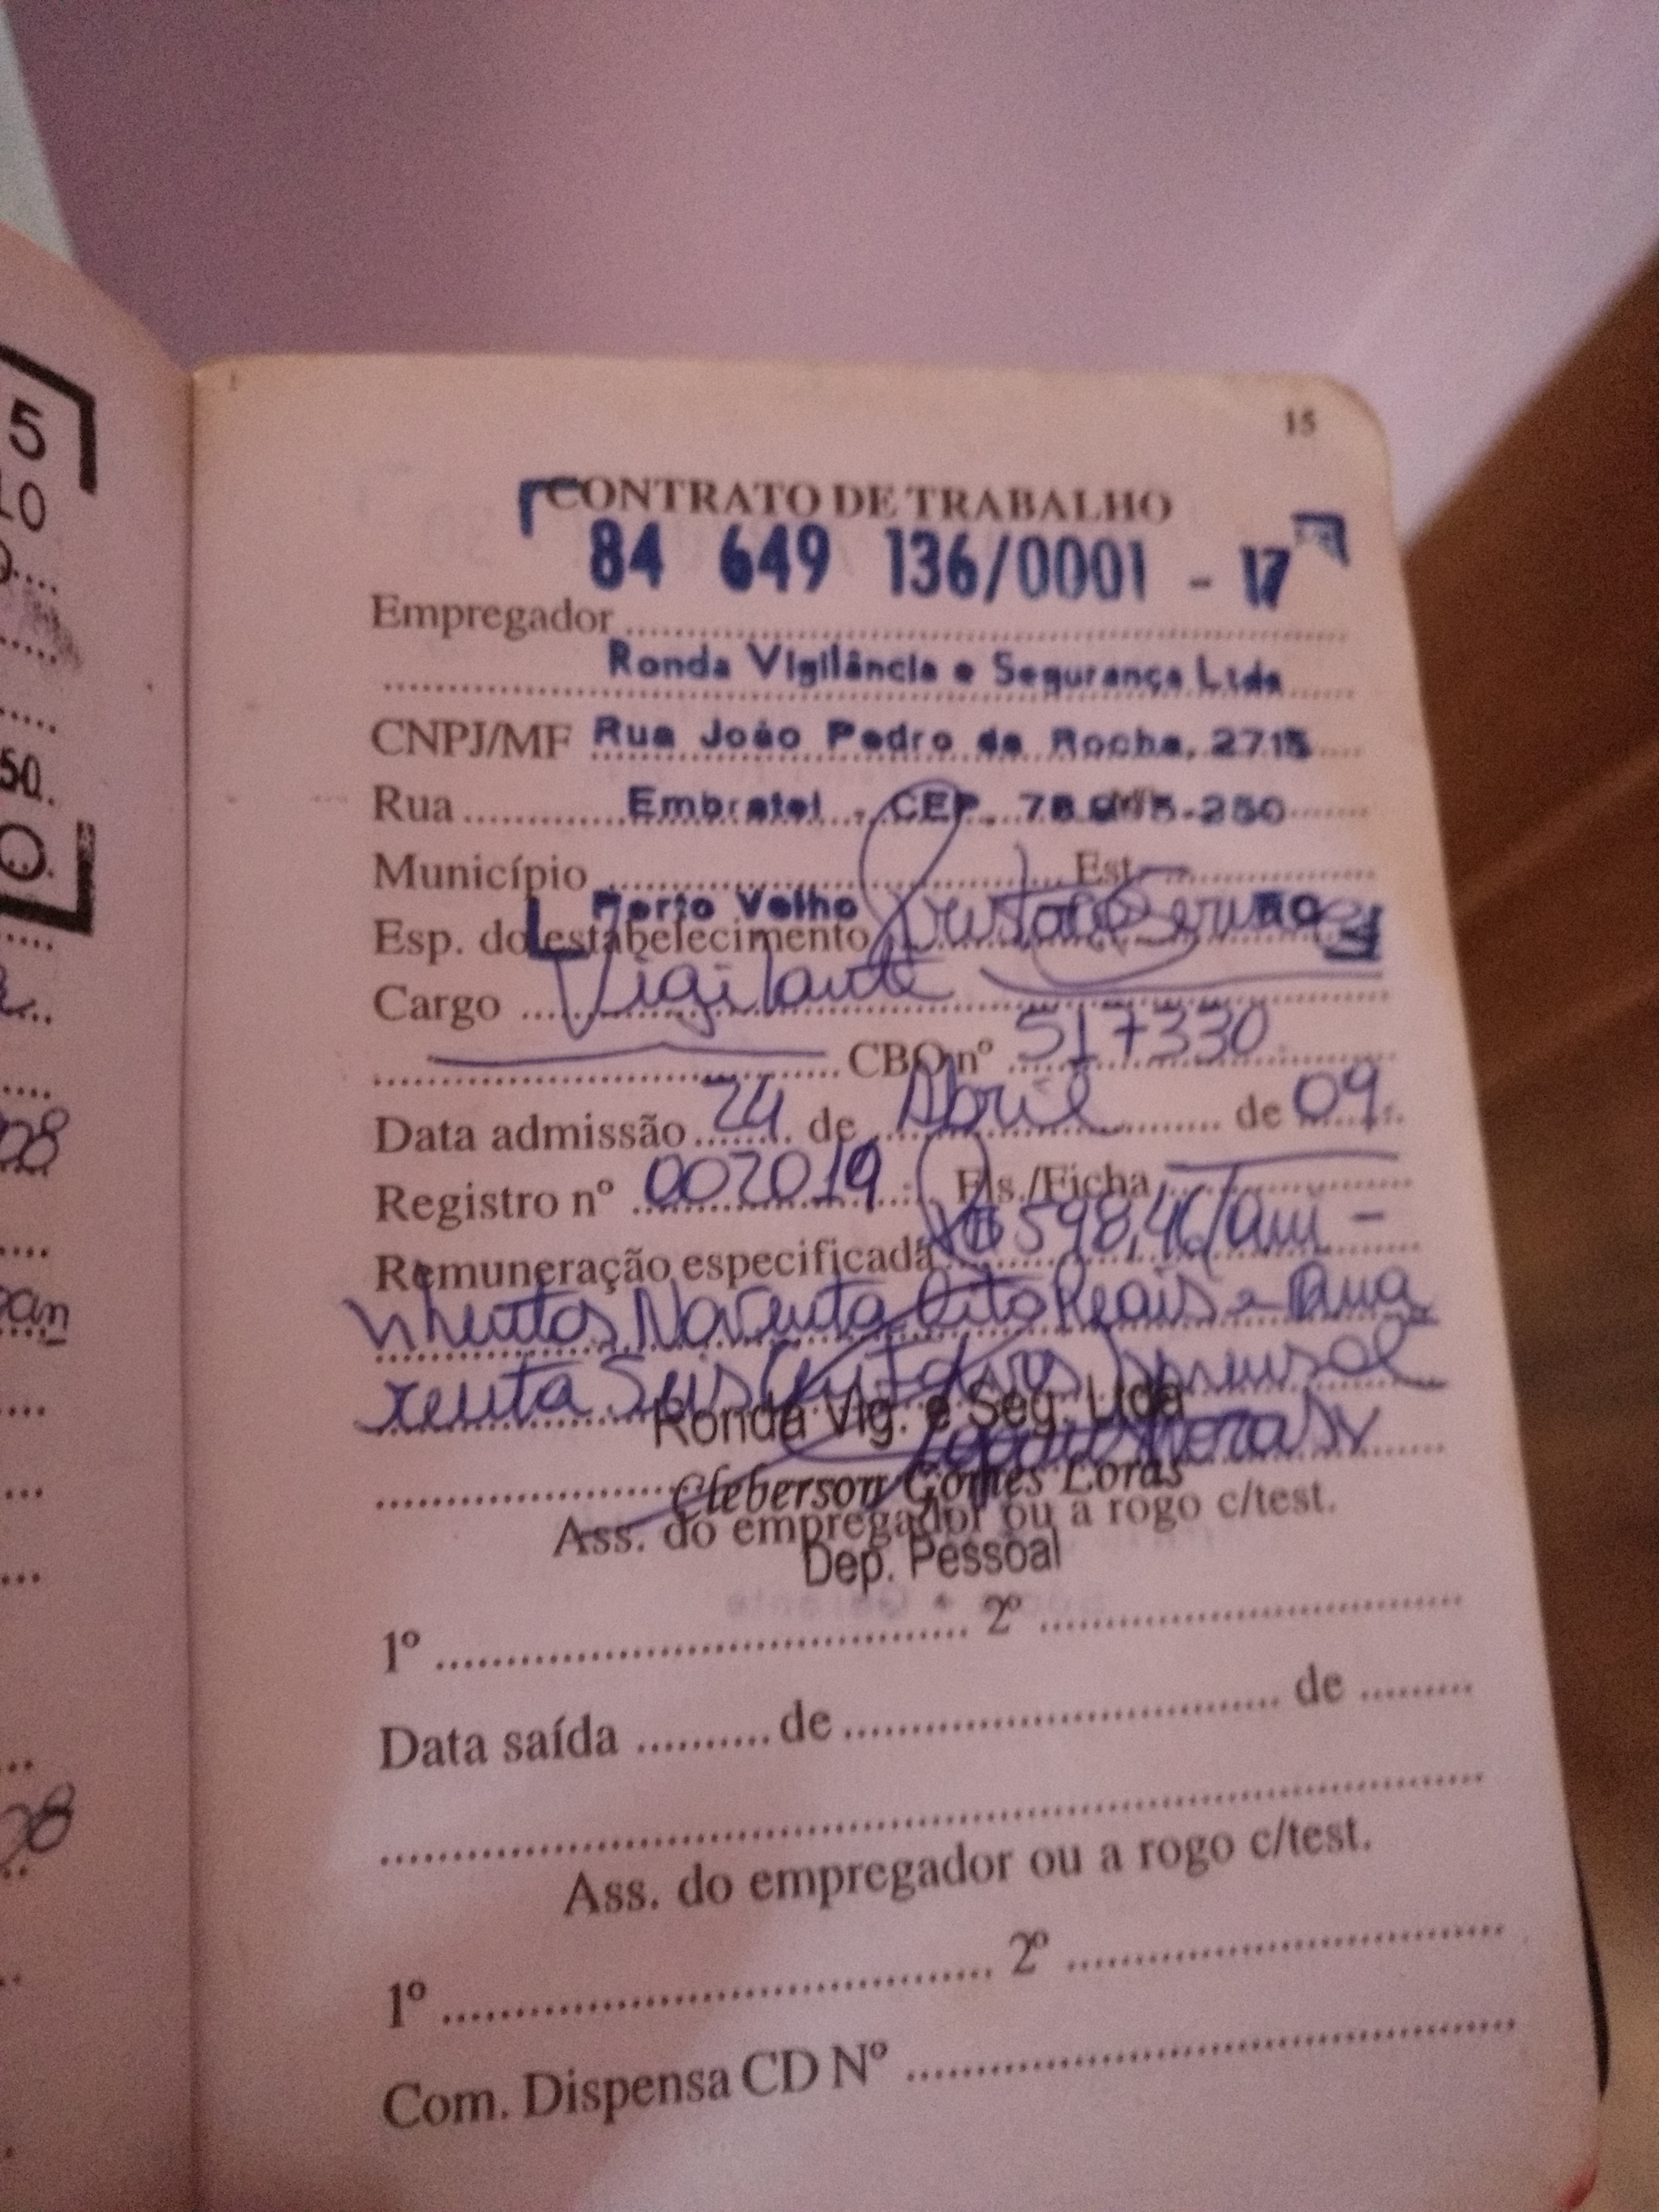 15
CONTRATO DE TRABALHO
84 649 136/0001 - 17
Empregador
Ronda Vigilância e Segurança Ltda
CNPJ/MF Rua João Pedro da Rocha, 2715
Rua Embratel - CEP. -250
Município Est.
Porto Velho RO
Esp. do estabelecimento
Cargo Vigilante
CBO nº 517330
Data admissão 24 de Abril de 09
Registro nº 002019 Fls./Ficha
Remuneração especificada R$ 598,46
Noventa Oito Reais e Qua
renta Seis mensal
Ronda Vig. e Seg. Ltda
Cleberson Gomes Loras
Ass. do empregador ou a rogo c/test.
Dep. Pessoal
1º 2º
Data saída de de
Ass. do empregador ou a rogo c/test.
1º 2º
Com. Dispensa CD Nº